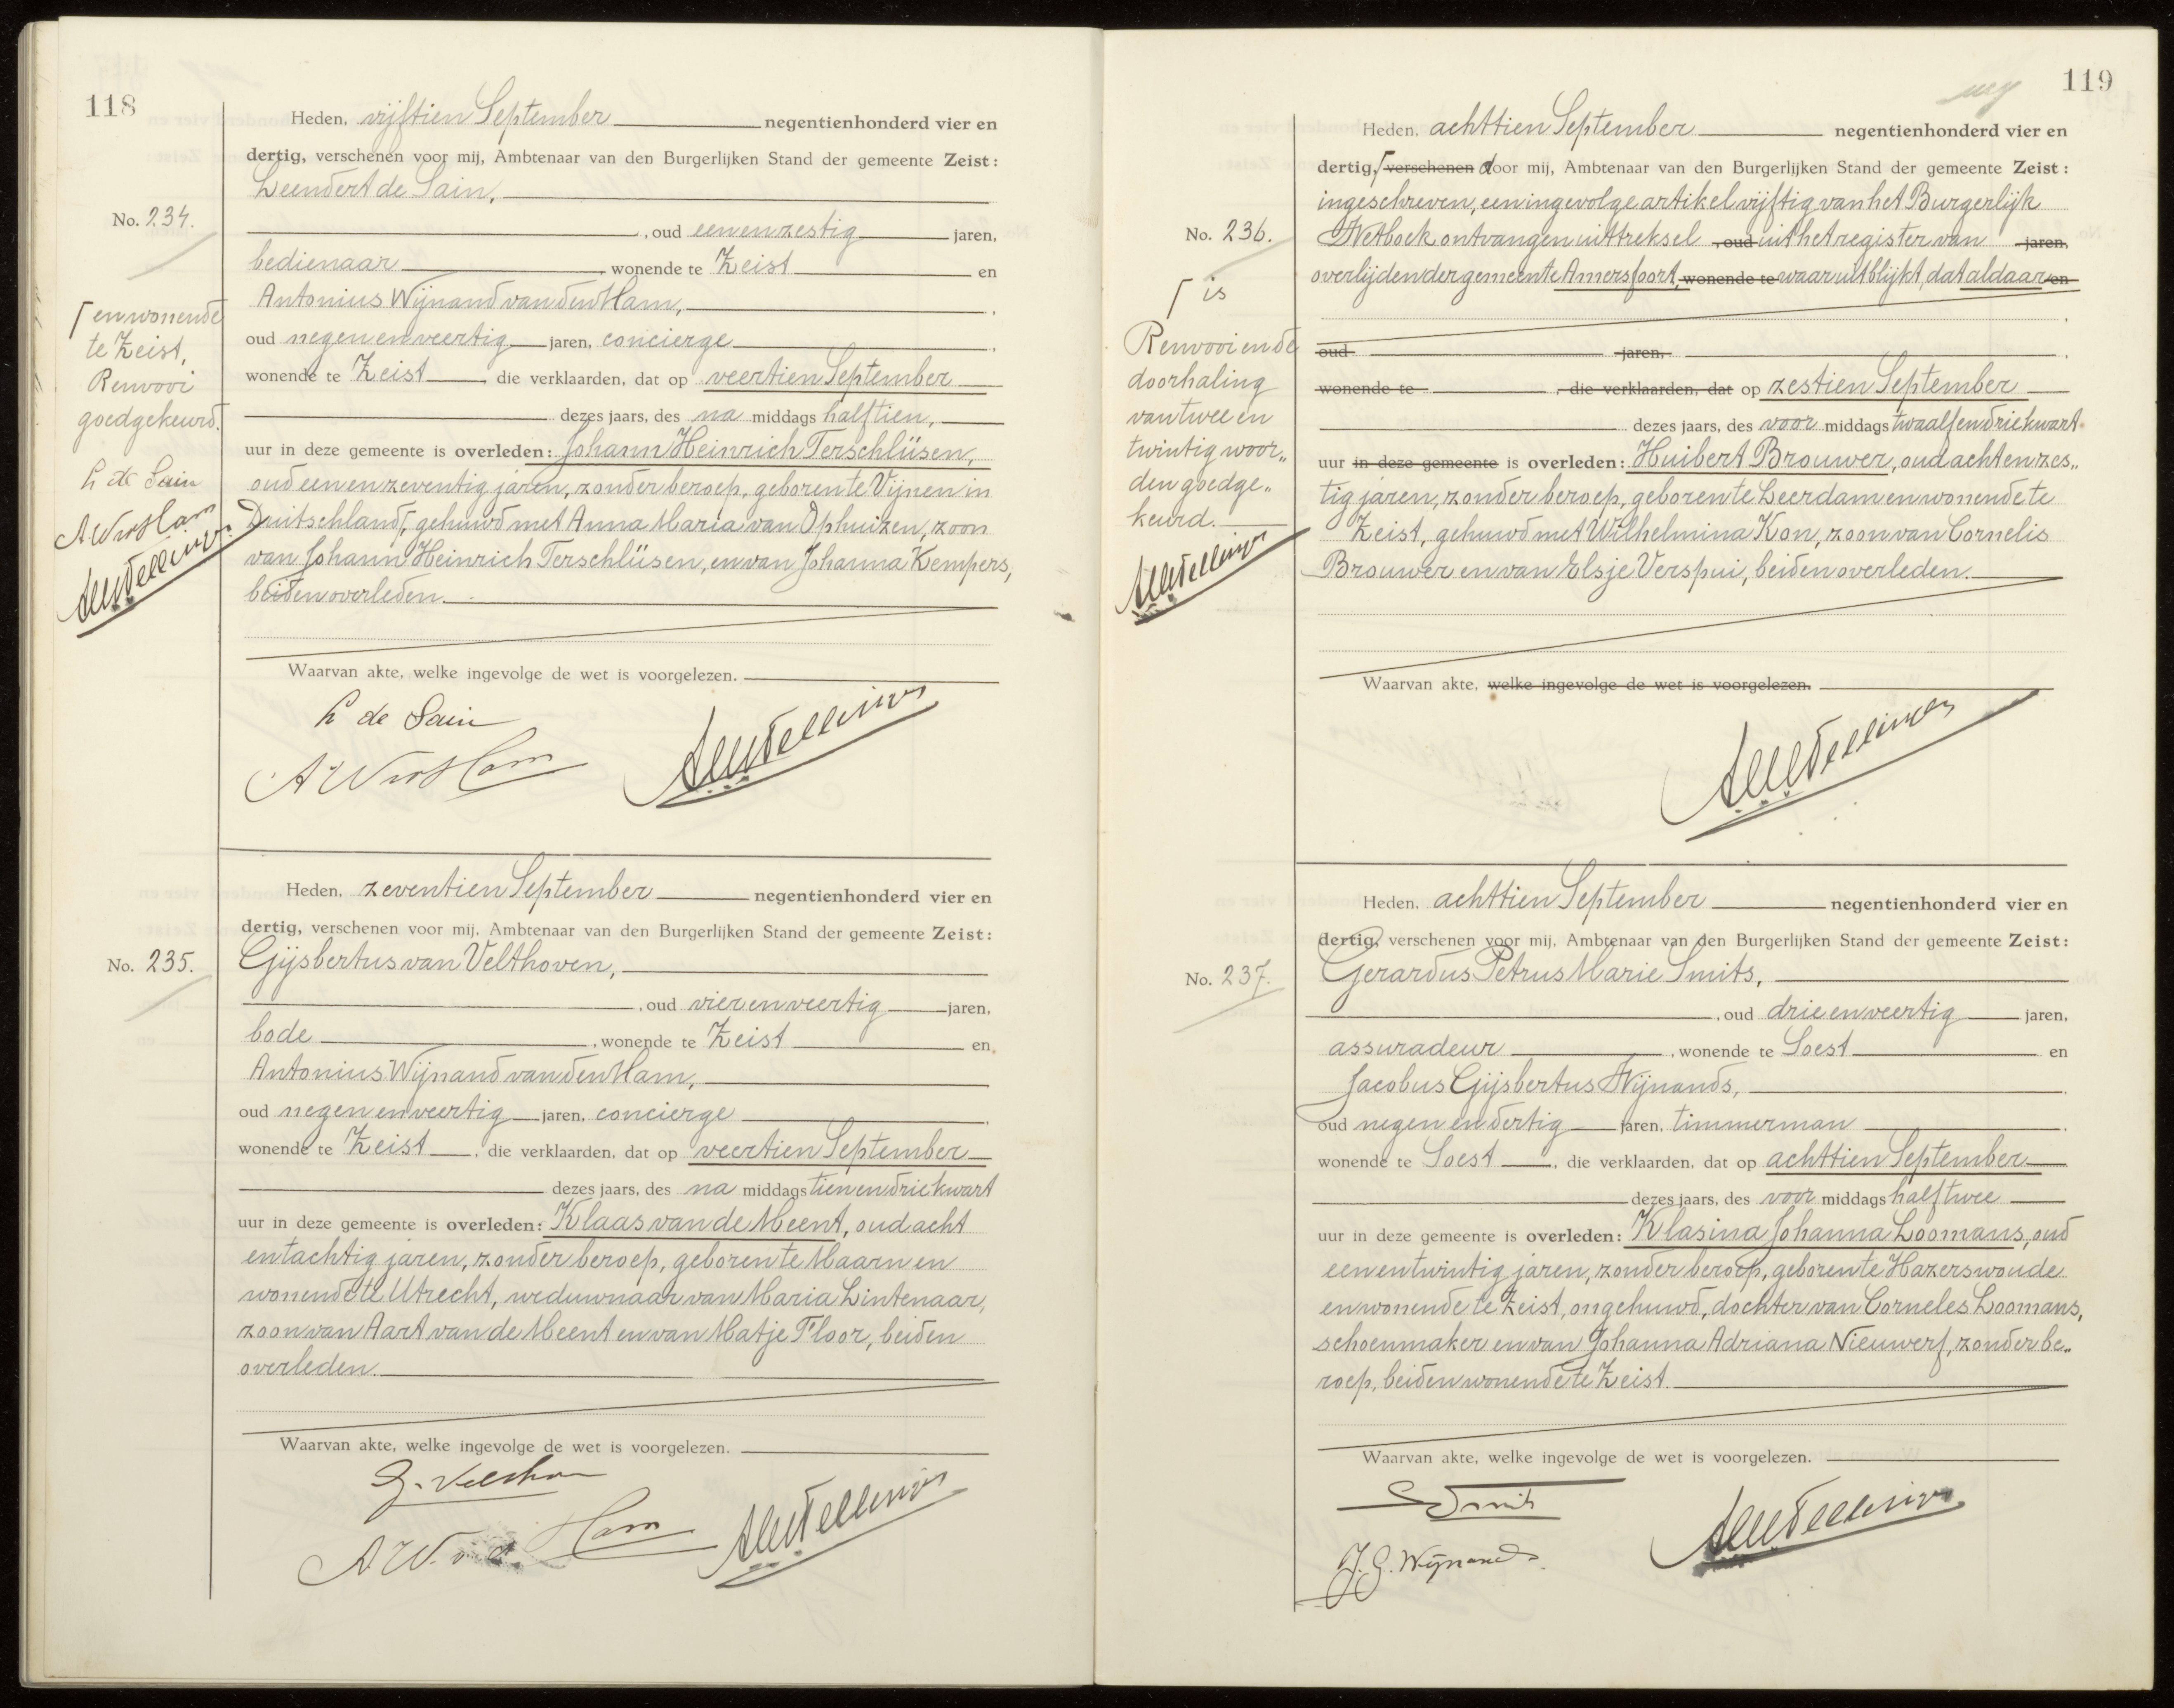 118
Heden, vijftien September negentienhonderd vier en
dertig, verschenen voor mij, Ambtenaar van den Burgerlijken Stand der gemeente Zeist:
Leendert de Sain,
No. 234.
, oud eenenzestig jaren,
bedienaar wonende te Zeist en
Antonius Wijnand van den Ham,
oud negen en veertig jaren, concierge
wonende te Zeist, die verklaarden, dat op veertien September
dezes jaars, des na middags half tien,
uur in deze gemeente is overleden: Johann Heinrich Terschlüsen,
oud eenenzeventig jaren, zonder beroep, geboren te Vijnen in
Duitschland, gehuwd met Anna Maria van Ophuizen, zoon
van Johann Heinrich Terschlüsen, en van Johanna Kempers,
beiden overleden.
en wonende
te Zeist,
Renvooi
goedgekeurd.
L de Sain
A W v d Ham
Waarvan akte, welke ingevolge de wet is voorgelezen.
L de Sain
A W v d Ham
Heden, zeventien September negentienhonderd vier en
dertig, verschenen voor mij, Ambtenaar van den Burgerlijken Stand der gemeente Zeist:
No. 235.
Gijsbertus van Velthoven,
, oud vier en veertig jaren,
bode, wonende te Zeist en
Antonius Wijnand van den Ham,
oud negen en veertig jaren, concierge
wonende te Zeist, die verklaarden, dat op veertien September
dezes jaars, des na middags tien en driekwart
uur in deze gemeente is overleden: Klaas van de Meent, oud acht
en tachtig jaren, zonder beroep, geboren te Maarn en
wonende te Utrecht, weduwnaar van Maria Lintenaar,
zoon van Aart van de Meent en van Matje Floor, beiden
overleden.
Waarvan akte, welke ingevolge de wet is voorgelezen.
A W. v. d. Ham
119
Heden, achttien September negentienhonderd vier en
dertig, verschenen door mij, Ambtenaar van den Burgerlijken Stand der gemeente Zeist:
ingeschreven, een ingevolge artikel vijftig van het Burgerlijk
No. 236.
Wetboek ontvangen uittreksel , oud uit het register van jaren,
overlijden der gemeente Amersfoort, wonende te waaruit blijkt, dat aldaar en
oud jaren,
wonende te , die verklaarden, dat op zestien September
dezes jaars, des voor middags twaalf en driekwart
uur in deze gemeente is overleden: Huibert Brouwer, oud achtenzes„
tig jaren, zonder beroep, geboren te Leerdam en wonende te
Zeist, gehuwd met Wilhelmina Kon, zoon van Cornelis
Brouwer en van Elsje Verspui, beiden overleden.
is
Renvooi en de
doorhaling
van twee en
twintig woor„
den goedge„
keurd.
Waarvan akte, welke ingevolge de wet is voorgelezen.
Heden, achttien September negentienhonderd vier en
dertig, verschenen voor mij, Ambtenaar van den Burgerlijken Stand der gemeente Zeist:
No. 237.
Gerardus Petrus Marie Smits,
, oud drie en veertig jaren,
assuradeur, wonende te Soest en
Jacobus Gijsbertus Wijnands,
oud negen en dertig jaren, timmerman
wonende te Soest, die verklaarden, dat op achttien September
dezes jaars, des voor middags half twee
uur in deze gemeente is overleden: Klasina Johanna Loomans, oud
een en twintig jaren, zonder beroep, geboren te Hazerswoude
en wonende te Zeist, ongehuwd, dochter van Corneles Loomans,
schoenmaker en van Johanna Adriana Nieuwerf, zonder be„
roep, beiden wonende te Zeist.
Waarvan akte, welke ingevolge de wet is voorgelezen.
J. G. Wijnands